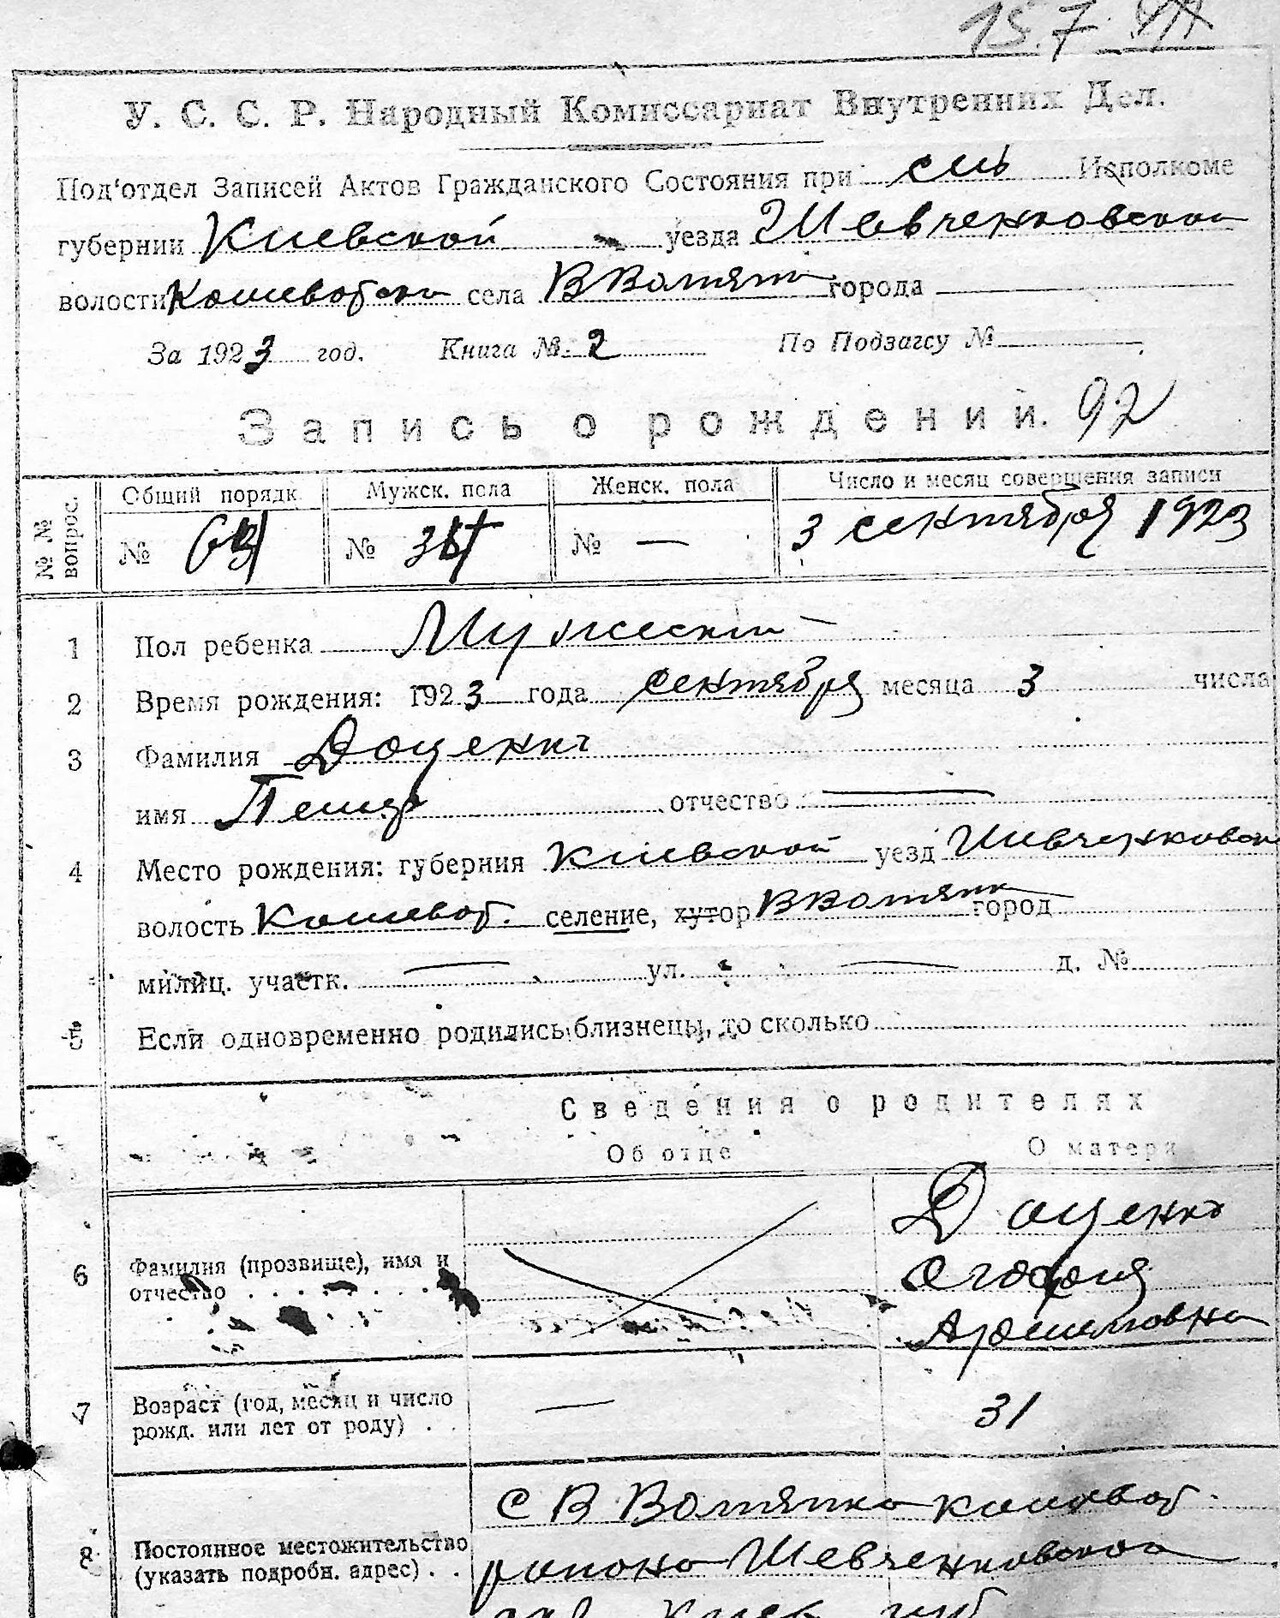 15.7. VII
У. С. С. Р. Народный Комиссариат Внутренних Дел.
Под‘отдел Записей Актов Гражданского Состояния при Исполкоме
губернии Киевской уезда Шевченковской
волости села города
За 1923 год. Книга № 2 По Подзагсу №
Запись о рождений. 92
№№ вопрос.
Общий порядк Мужск. пола Женск. пола Число и месяц совершения записи
№ № № — 3 сентября 1923
1 Пол ребенка Мужеский
2 Время рождения: 1923 года сентября месяца 3 числа
3 Фамилия Доценко
имя Петр отчество —
4 Место рождения: губерния Киевской уезд Шевченковской
волость Кошеват. селение, хутор город
милиц. участк. — ул. — д. №
5 Если одновременно родились близнецы, то сколько
Сведения о родителях
Об отце О матери
6 Фамилия (прозвище), имя и Доценко
отчество . . . . . . . . Агафия
Артемовна
7 Возраст (год, месяц и число — 31
рожд. или лет от роду) . .
С В
8 Постоянное местожительство района Шевченковской
(указать подробн. адрес) . .
Киев губ